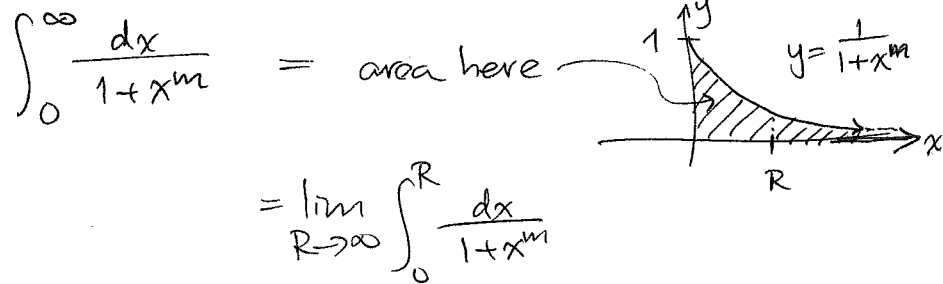 ∫₀^∞ dx/(1+x^m) = area here
y
1
y = 1/(1+x^m)
x
R
= lim_{R→∞} ∫₀^R dx/(1+x^m)